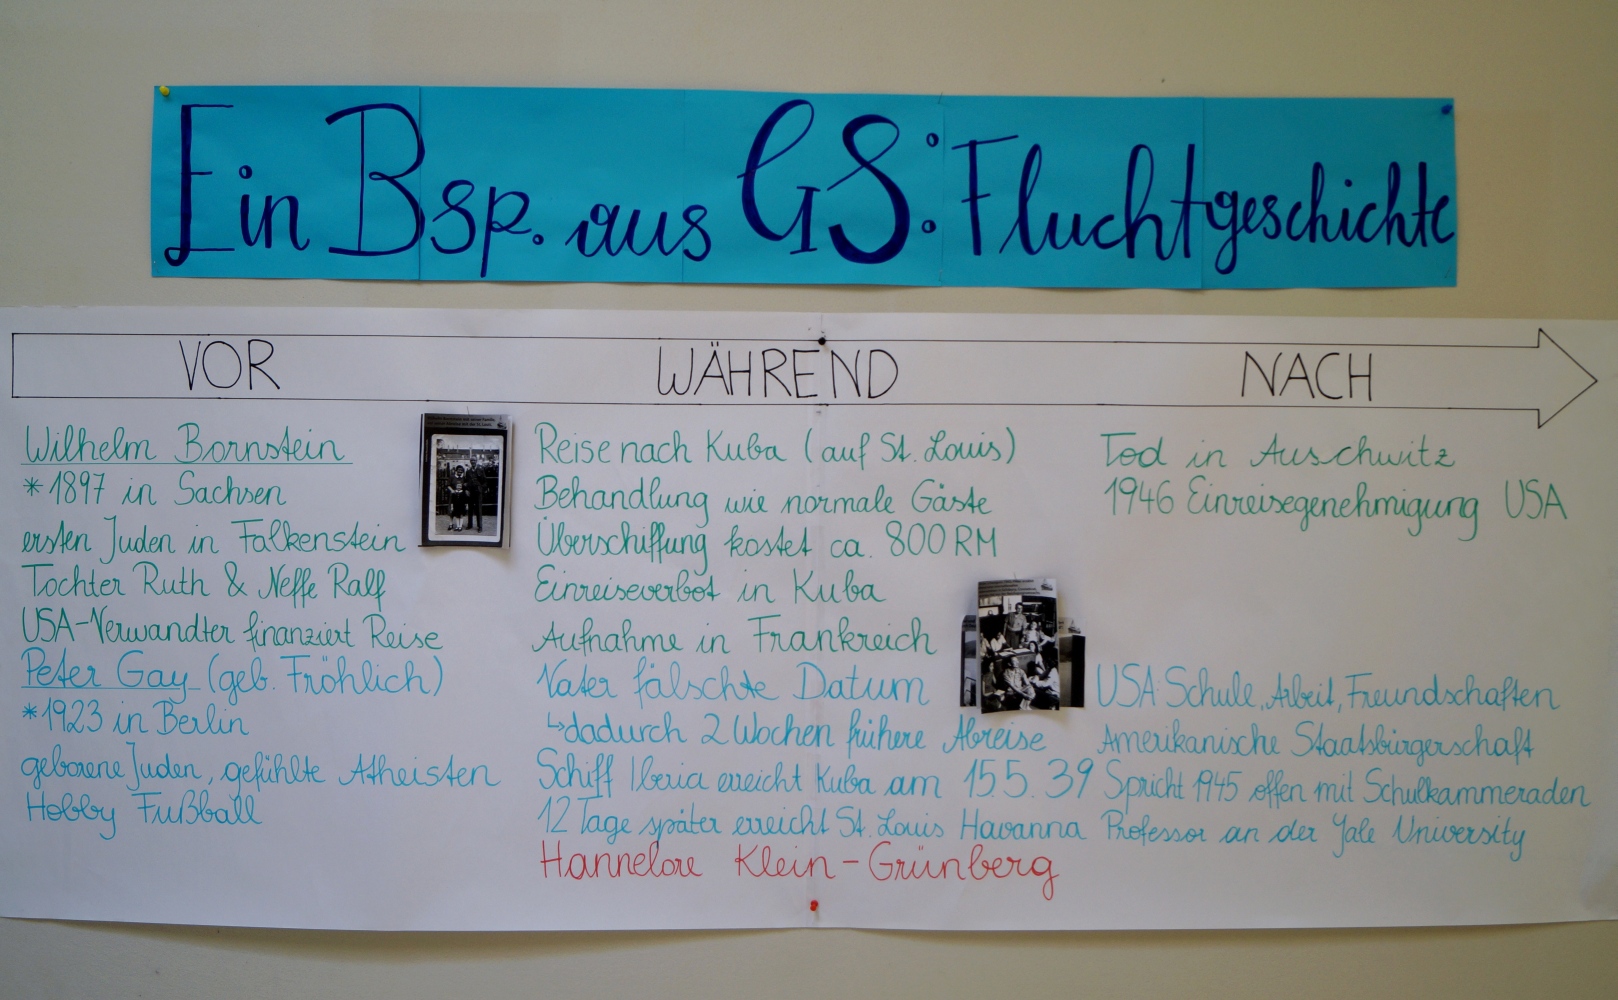 Ein Bsp. aus GS: Fluchtgeschichte
VOR
WÄHREND
NACH
Wilhelm Bornstein
*1897 in Sachsen
ersten Juden in Falkenstein
Tochter Ruth & Neffe Ralf
USA-Verwandter finanziert Reise
Peter Gay (geb. Fröhlich)
*1923 in Berlin
geborene Juden, gefühlte Atheisten
Hobby Fußball
Reise nach Kuba (auf St. Louis)
Behandlung wie normale Gäste
Überschiffung kostet ca. 800 RM
Einreiseverbot in Kuba
Aufnahme in Frankreich
Vater fälschte Datum
↳dadurch 2 Wochen frühere Abreise
Schiff Iberia erreicht Kuba am 15.5.39
12 Tage später erreicht St. Louis Havanna
Hannelore Klein-Grünberg
Tod in Auschwitz
1946 Einreisegenehmigung USA
USA: Schule, Arbeit, Freundschaften
Amerikanische Staatsbürgerschaft
Spricht 1945 offen mit Schulkammeraden
Professor an der Yale University